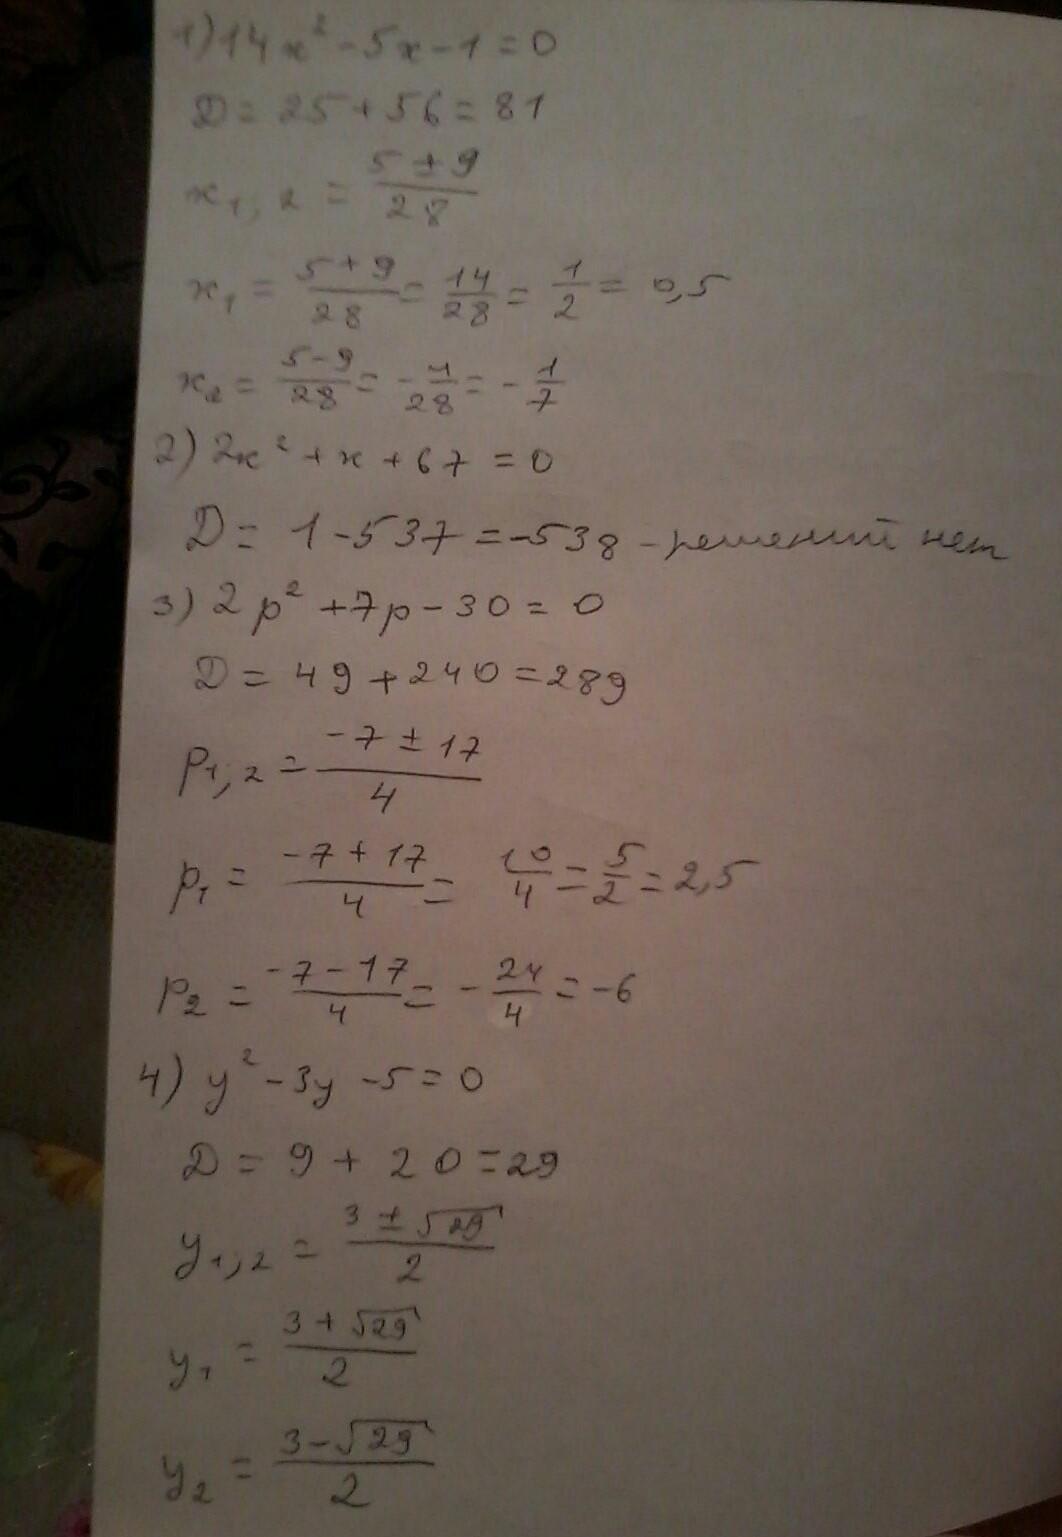 1) 14x² - 5x - 1 = 0
D = 25 + 56 = 81
x₁;₂ = (5 ± 9)/28
x₁ = (5 + 9)/28 = 14/28 = 1/2 = 0,5
x₂ = (5 - 9)/28 = - 4/28 = - 1/7
2) 2x² + x + 67 = 0
D = 1 - 537 = -538 - решений нет
3) 2p² + 7p - 30 = 0
D = 49 + 240 = 289
p₁;₂ = (-7 ± 17)/4
p₁ = (-7 + 17)/4 = 10/4 = 5/2 = 2,5
p₂ = (-7 - 17)/4 = - 24/4 = -6
4) y² - 3y - 5 = 0
D = 9 + 20 = 29
y₁;₂ = (3 ± √29)/2
y₁ = (3 + √29)/2
y₂ = (3 - √29)/2